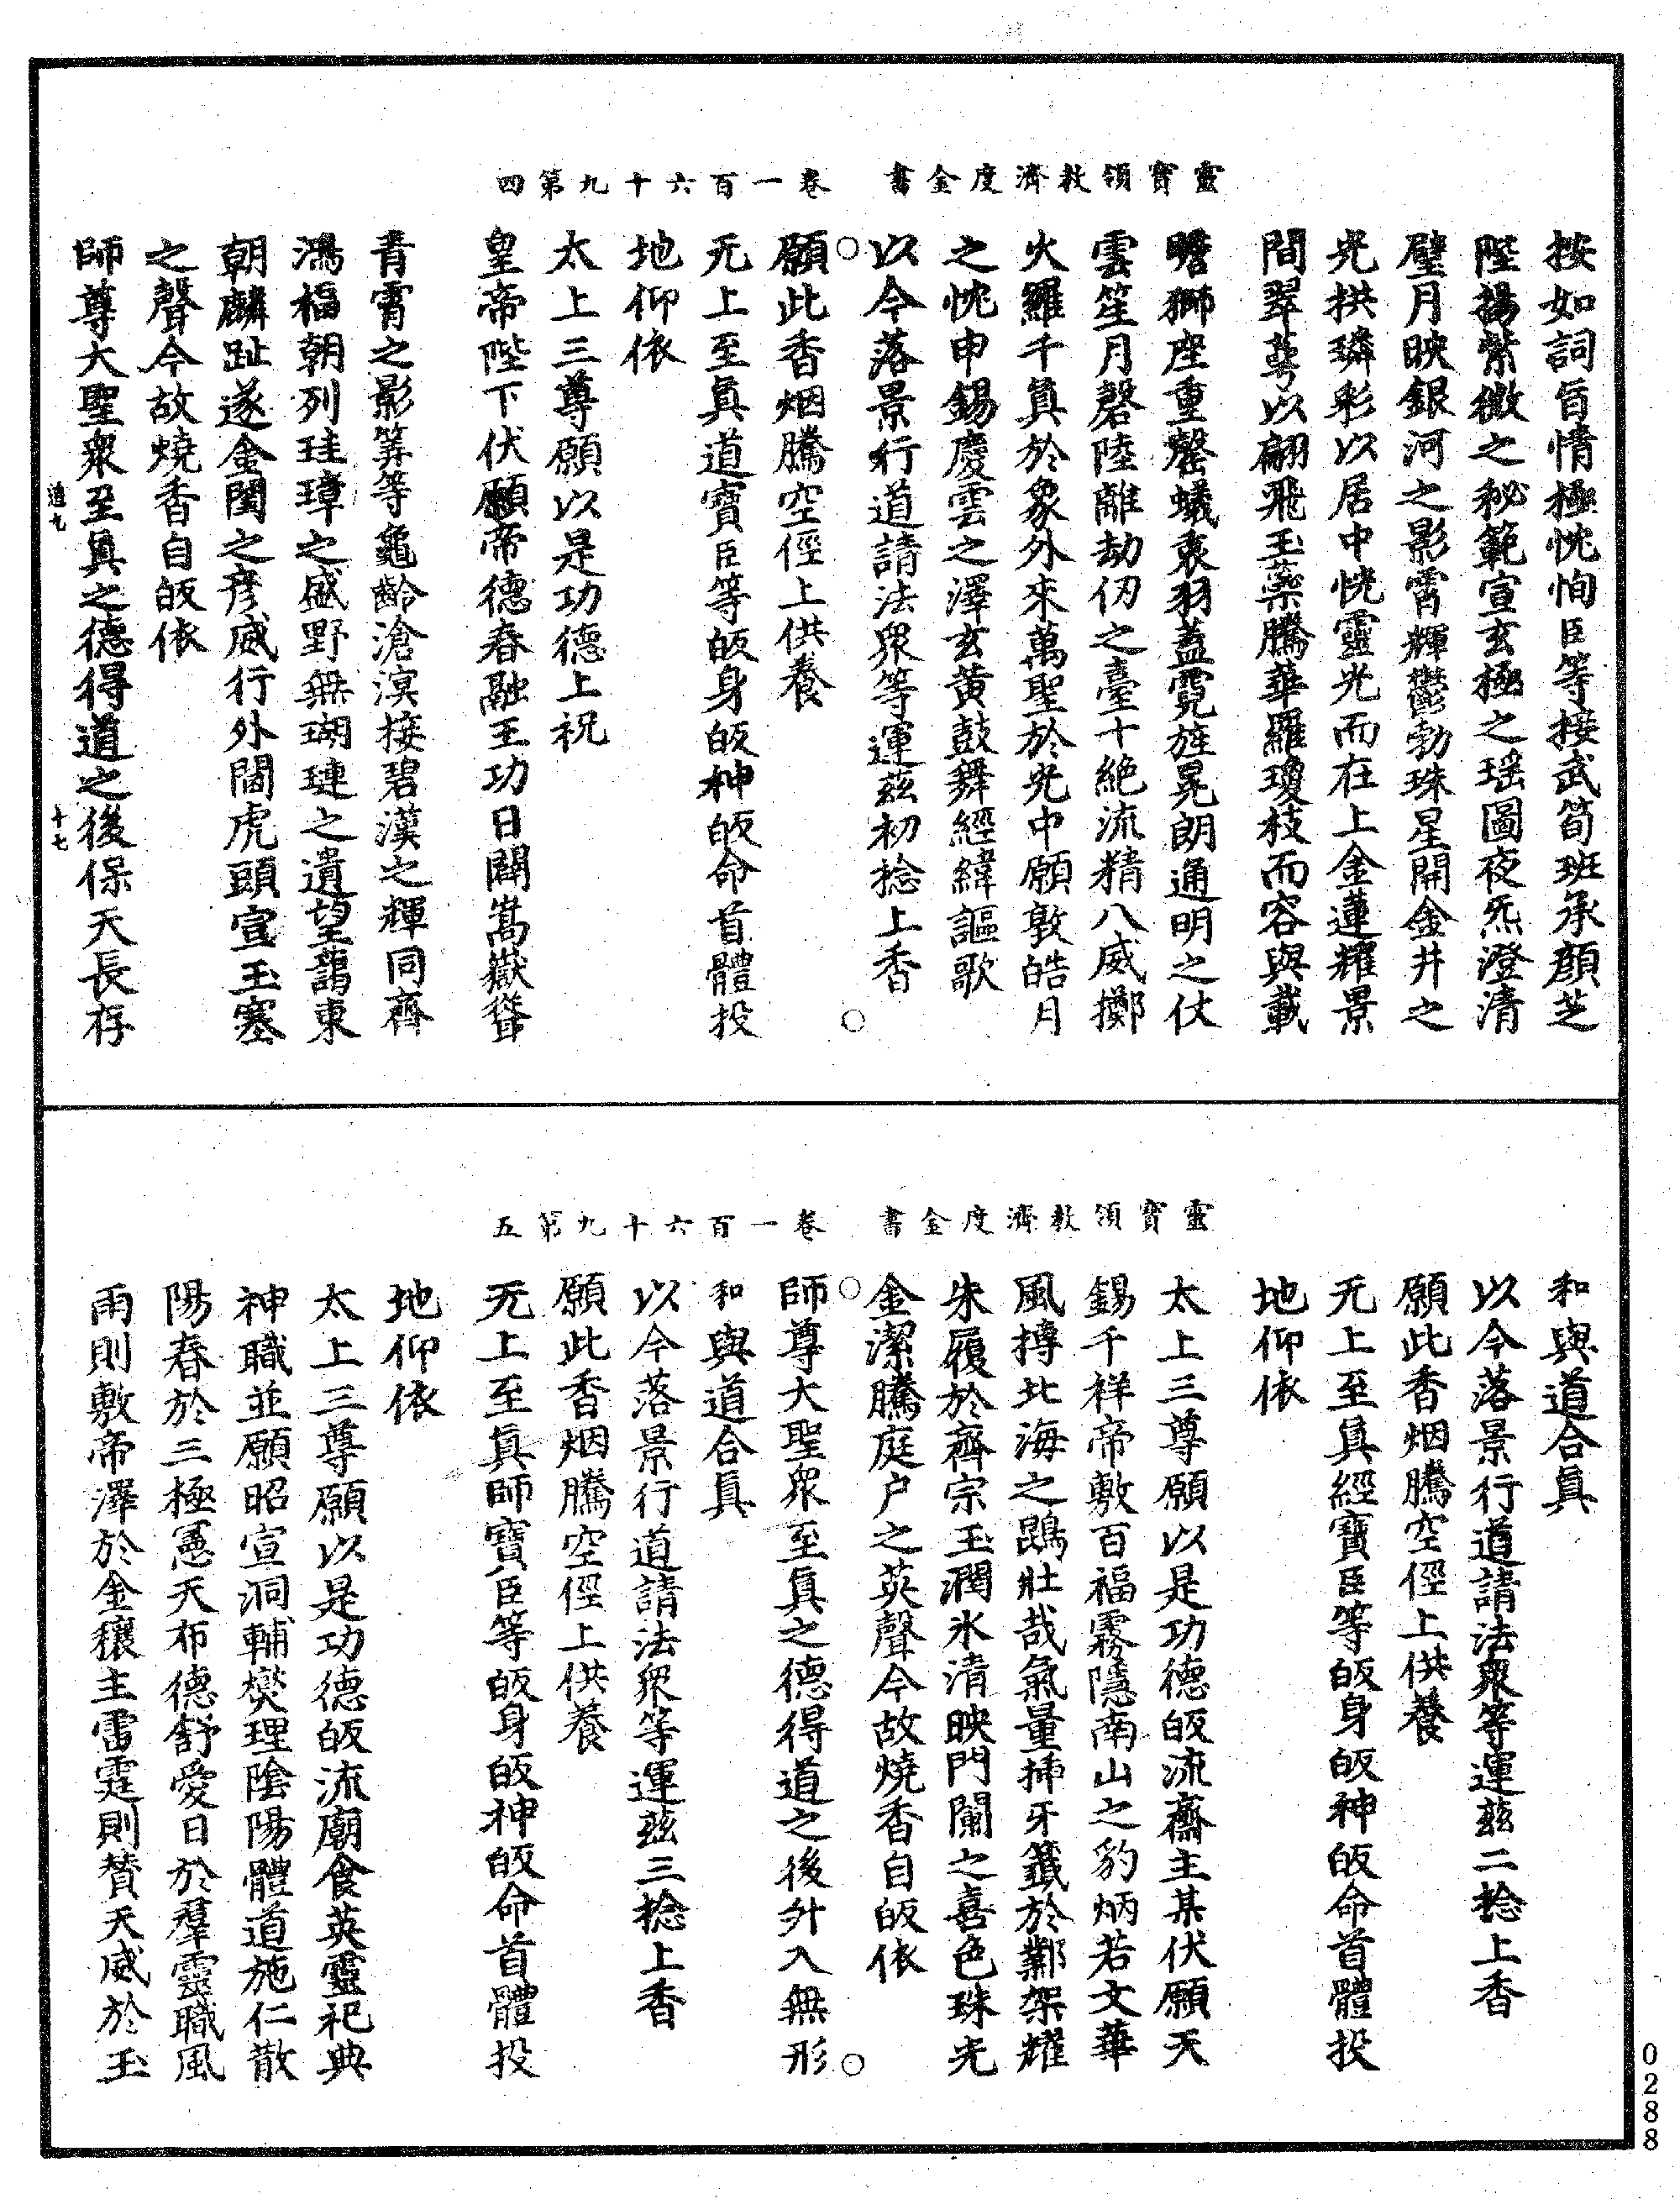 靈寶領教濟度金書　卷一百六十九第四
按如詞旨情極忱恂臣等接武筍班承顏芝
陛揚紫微之秘範宣玄極之瑶圖夜炁澄清
璧月映銀河之影霄輝鬱勃珠星開金井之
光拱璘彩以居中恍靈光而在上金蓮耀景
間翠蕚以翩飛玉蘂騰華羅瓊枝而容與載
瞻獅座重罄蟻衷羽蓋霓旌晃朗通明之仗
雲笙月磬陸離劫仞之臺十絶流精八威擲
火羅千真於象外來萬聖於光中願敦皓月
之忱申錫慶雲之澤玄黄鼓舞經緯謳歌
以今落景行道請法衆等運茲初捻上香
○　○
願此香烟騰空徑上供養
无上至真道寶臣等皈身皈神皈命首體投
地仰依
太上三尊願以是功德上祝
皇帝陛下伏願帝德春融王功日闢嵩嶽聳
青霄之影筭等龜齡滄溟接碧漢之輝同齊
鴻福朝列珪璋之盛野無瑚璉之遺望藹東
朝麟趾遂金閨之彦威行外閫虎頭宣玉塞
之聲今故燒香自皈依
師尊大聖衆至真之德得道之後保天長存
遣九　十七
靈寶領教濟度金書　卷一百六十九第五
和與道合真
以今落景行道請法衆等運茲二捻上香
願此香烟騰空徑上供養
无上至真經寶臣等皈身皈神皈命首體投
地仰依
太上三尊願以是功德皈流齋主某伏願天
錫千祥帝敷百福霧隱南山之豹炳若文華
風摶北海之鵾壯哉氣量揷牙籤於鄴架耀
朱履於齊宗玉潤氷清映門闌之喜色珠光
金潔騰庭户之英聲今故燒香自皈依
○　○
師尊大聖衆至真之德得道之後升入無形
和與道合真
以今落景行道請法衆等運茲三捻上香
願此香烟騰空徑上供養
无上至真師寶臣等皈身皈神皈命首體投
地仰依
太上三尊願以是功德皈流廟食英靈祀典
神職並願昭宣洞輔燮理陰陽體道施仁散
陽春於三極憲天布德舒愛日於羣靈職風
雨則敷帝澤於金穰主雷霆則賛天威於玉
0288